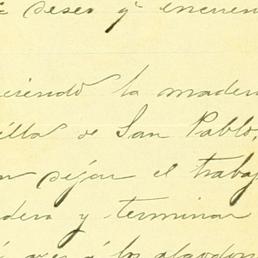 deseo y encuen
riendo la mader
illa de San Pablo,
n dejar el trabaj
dera y terminar
á los algodon